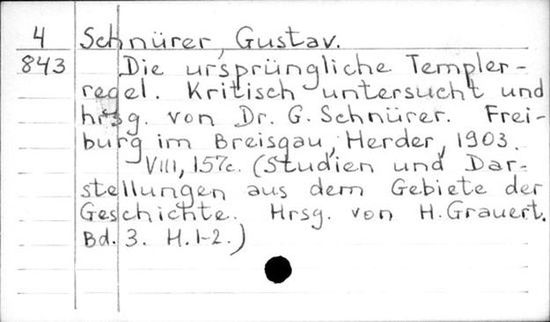 4 Schnürer, Gustav.
843 Die ursprüngliche Templer-
regel. Kritisch untersucht und
hrsg. von Dr. G. Schnürer. Frei-
burg im Breisgau, Herder, 1903.
VIII, 157c. (Studien und Dar-
stellungen aus dem Gebiete der
Geschichte. Hrsg. von H. Grauert.
Bd. 3. H. 1-2.)